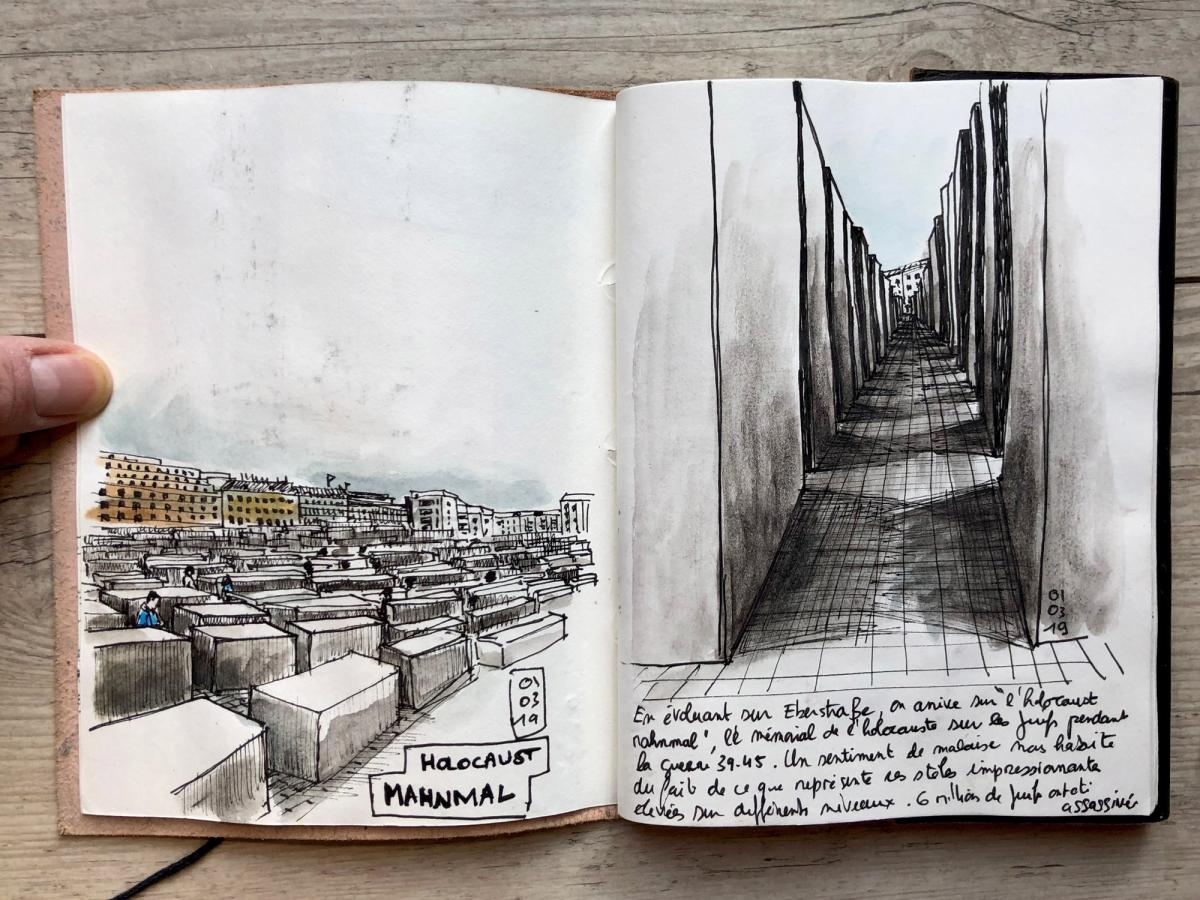 01
03
19
HOLOCAUST
MAHNMAL
01
03
19
En évoluant sur Eberstraße, on arrive sur "l'holocaust
mahnmal", le mémorial de l'holocauste sur les juifs pendant
la guerre 39.45. Un sentiment de malaise nous habite
du fait de ce que représente ces stèles impressionnante
elevées sur différents niveaux. 6 million de juifs ont été
assassinés